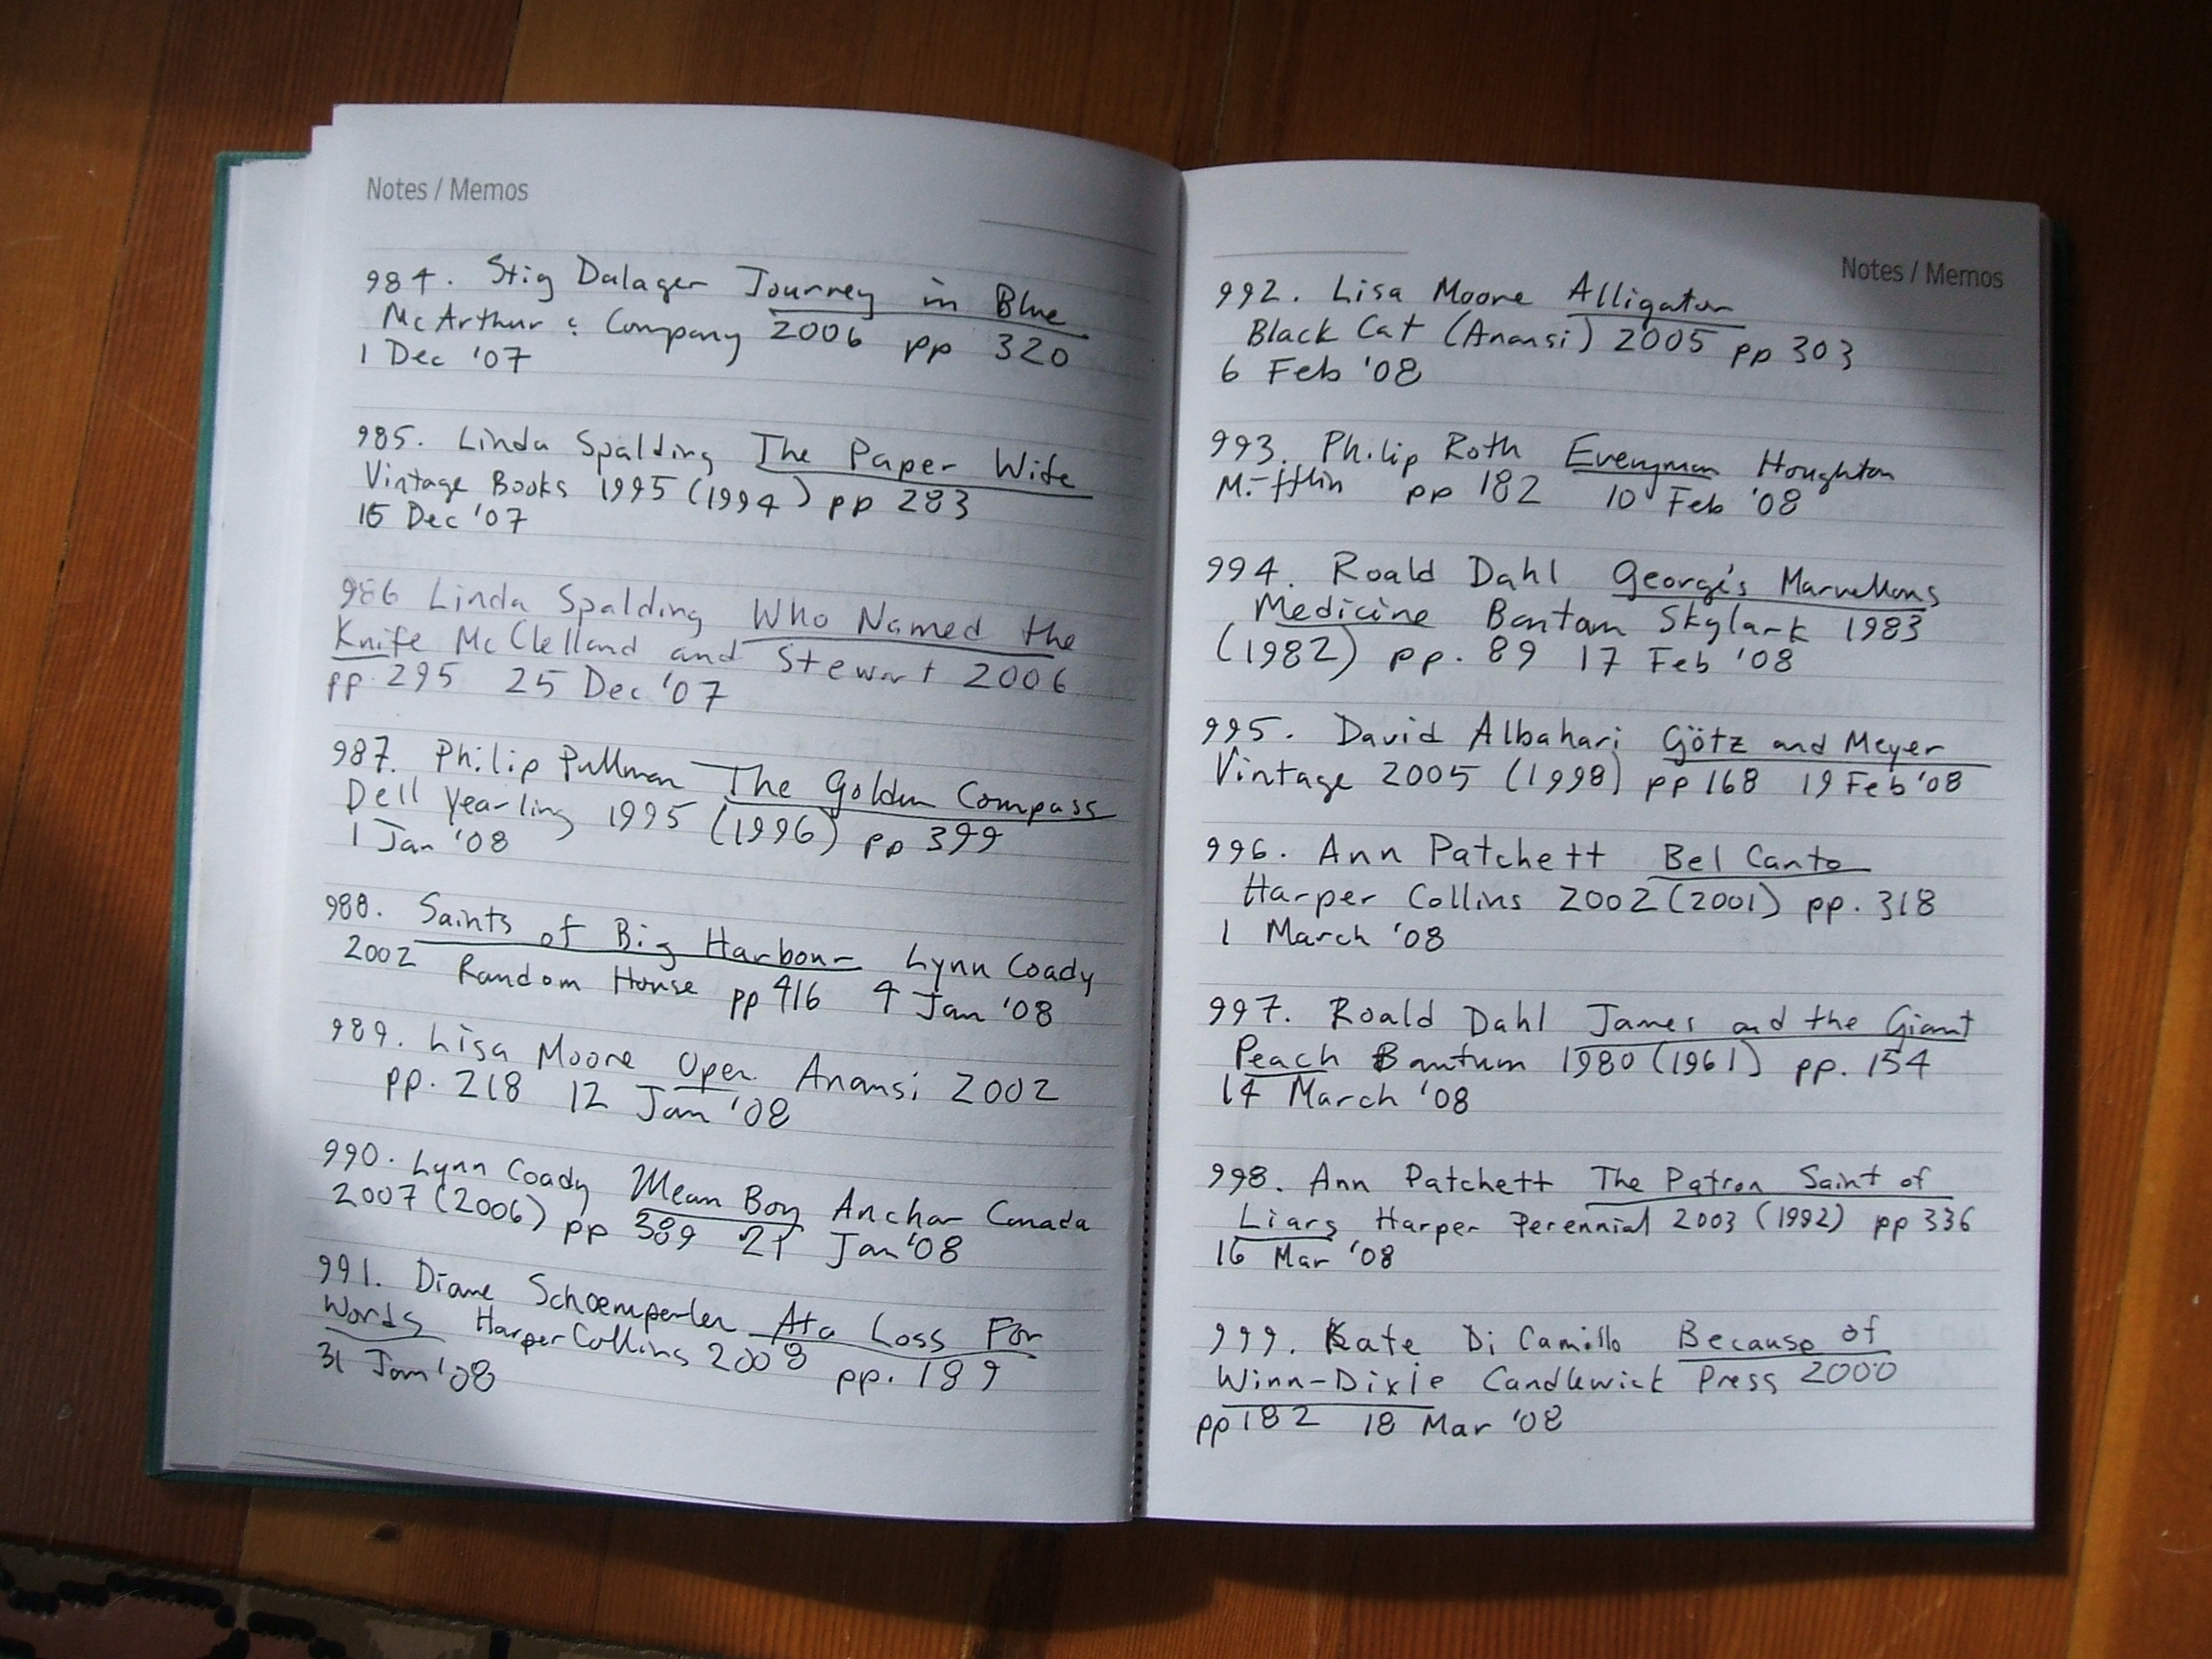 Notes / Memos
984. Stig Dalager Journey in Blue
McArthur & Company 2006 pp 320
1 Dec '07
985. Linda Spalding The Paper Wife
Vintage Books 1995 (1994) pp 283
15 Dec '07
986 Linda Spalding Who Named the
Knife McClelland and Stewart 2006
pp. 295 25 Dec '07
987. Philip Pullman The Golden Compass
Dell Yearling 1995 (1996) pp 399
1 Jan '08
988. Saints of Big Harbour Lynn Coady
2002 Random House pp 416 4 Jan '08
989. Lisa Moore Open Anansi 2002
pp. 218 12 Jan '08
990. Lynn Coady Mean Boy Anchor Canada
2007 (2006) pp 389 21 Jan '08
991. Diane Schoemperlen At a Loss For
Words HarperCollins 2008 pp. 189
31 Jan '08
Notes / Memos
992. Lisa Moore Alligator
Black Cat (Anansi) 2005 pp 303
6 Feb '08
993. Philip Roth Everyman Houghton
Mifflin pp 182 10 Feb '08
994. Roald Dahl George's Marvellous
Medicine Bantam Skylark 1983
(1982) pp. 89 17 Feb '08
995. David Albahari Götz and Meyer
Vintage 2005 (1998) pp 168 19 Feb '08
996. Ann Patchett Bel Canto
Harper Collins 2002 (2001) pp. 318
1 March '08
997. Roald Dahl James and the Giant
Peach Bantum 1980 (1961) pp. 154
14 March '08
998. Ann Patchett The Patron Saint of
Liars Harper Perennial 2003 (1992) pp 336
16 Mar '08
999. Kate Di Camillo Because of
Winn-Dixie Candlewick Press 2000
pp 182 18 Mar '08